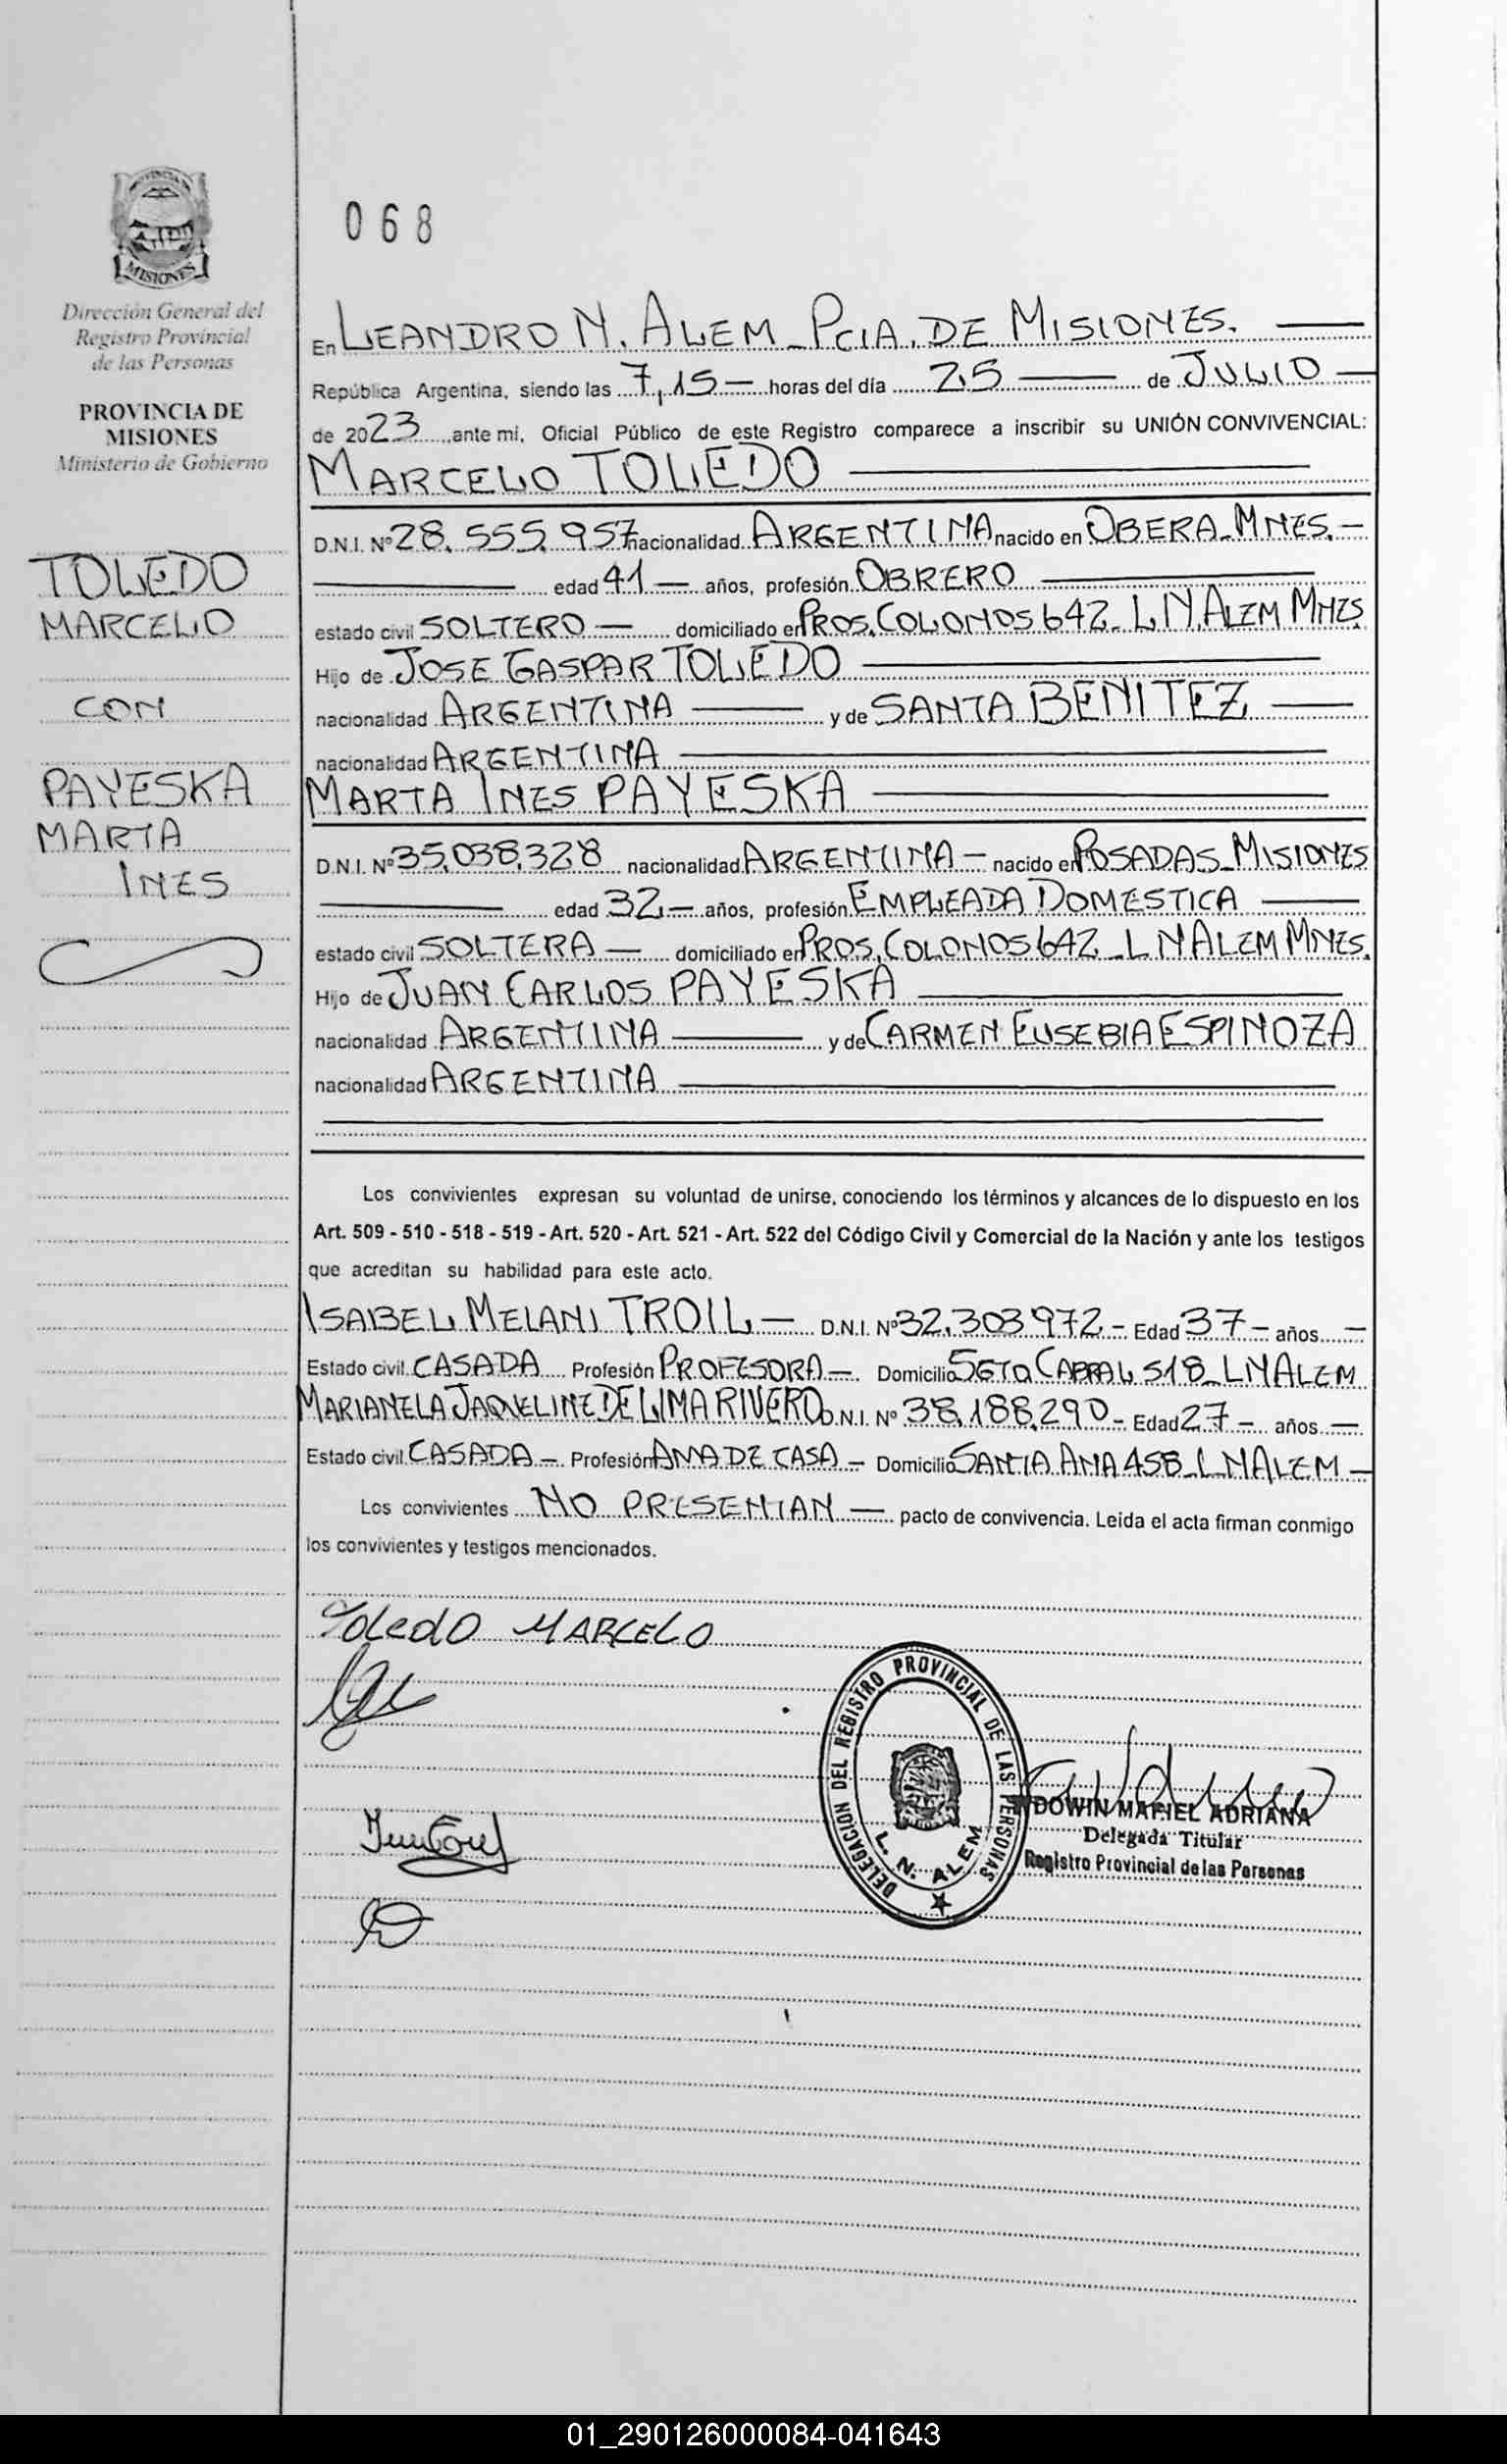 068
PROVINCIA DE
MISIONES
Dirección General del
Registro Provincial
de las Personas
PROVINCIA DE
MISIONES
Ministerio de Gobierno
TOLEDO
MARCELO
CON
PAYESKA
MARTA
INES
En LEANDRO N. ALEM - PCIA. DE MISIONES.
República Argentina, siendo las 7,15 horas del día 25 de JULIO
de 2023 ,ante mí, Oficial Público de este Registro comparece a inscribir su UNIÓN CONVIVENCIAL:
MARCELO TOLEDO
D.N.I. Nº 28.555.957 nacionalidad ARGENTINA nacido en OBERA - MNES.-
edad 41 años, profesión OBRERO
estado civil SOLTERO domiciliado en PROS. COLONOS 642 - L N. ALEM MNES
Hijo de JOSE GASPAR TOLEDO
nacionalidad ARGENTINA y de SANTA BENITEZ
nacionalidad ARGENTINA
MARTA INES PAYESKA
D.N.I. Nº 35.038.328 nacionalidad ARGENTINA - nacido en POSADAS - MISIONES
edad 32.- años, profesión EMPLEADA DOMESTICA
estado civil SOLTERA domiciliado en PROS. COLONOS 642 - L N ALEM MNES.
Hijo de JUAN CARLOS PAYESKA
nacionalidad ARGENTINA y de CARMEN EUSEBIA ESPINOZA
nacionalidad ARGENTINA
Los convivientes expresan su voluntad de unirse, conociendo los términos y alcances de lo dispuesto en los
Art. 509 - 510 - 518 - 519 - Art. 520 - Art. 521 - Art. 522 del Código Civil y Comercial de la Nación y ante los testigos
que acreditan su habilidad para este acto.
ISABEL MELANI TROIL - D.N.I. Nº 32.303.972 - Edad 37 - años
Estado civil CASADA Profesión PROFESORA - Domicilio SGTO CABRAL 518 - L N ALEM
MARIANELA JAQUELINE DE LIMA RIVERO D.N.I. Nº 38.188.290 - Edad 27 - años
Estado civil CASADA - Profesión AMA DE CASA - Domicilio SANTA ANA 458 - L N ALEM -
Los convivientes NO PRESENTAN pacto de convivencia. Leida el acta firman conmigo
los convivientes y testigos mencionados.
Toledo MARCELO
DELEGACION DEL REGISTRO PROVINCIAL DE LAS PERSONAS
L. N. ALEM
WDOWIN MARIEL ADRIANA
Delegada Titular
Registro Provincial de las Personas
01_290126000084-041643